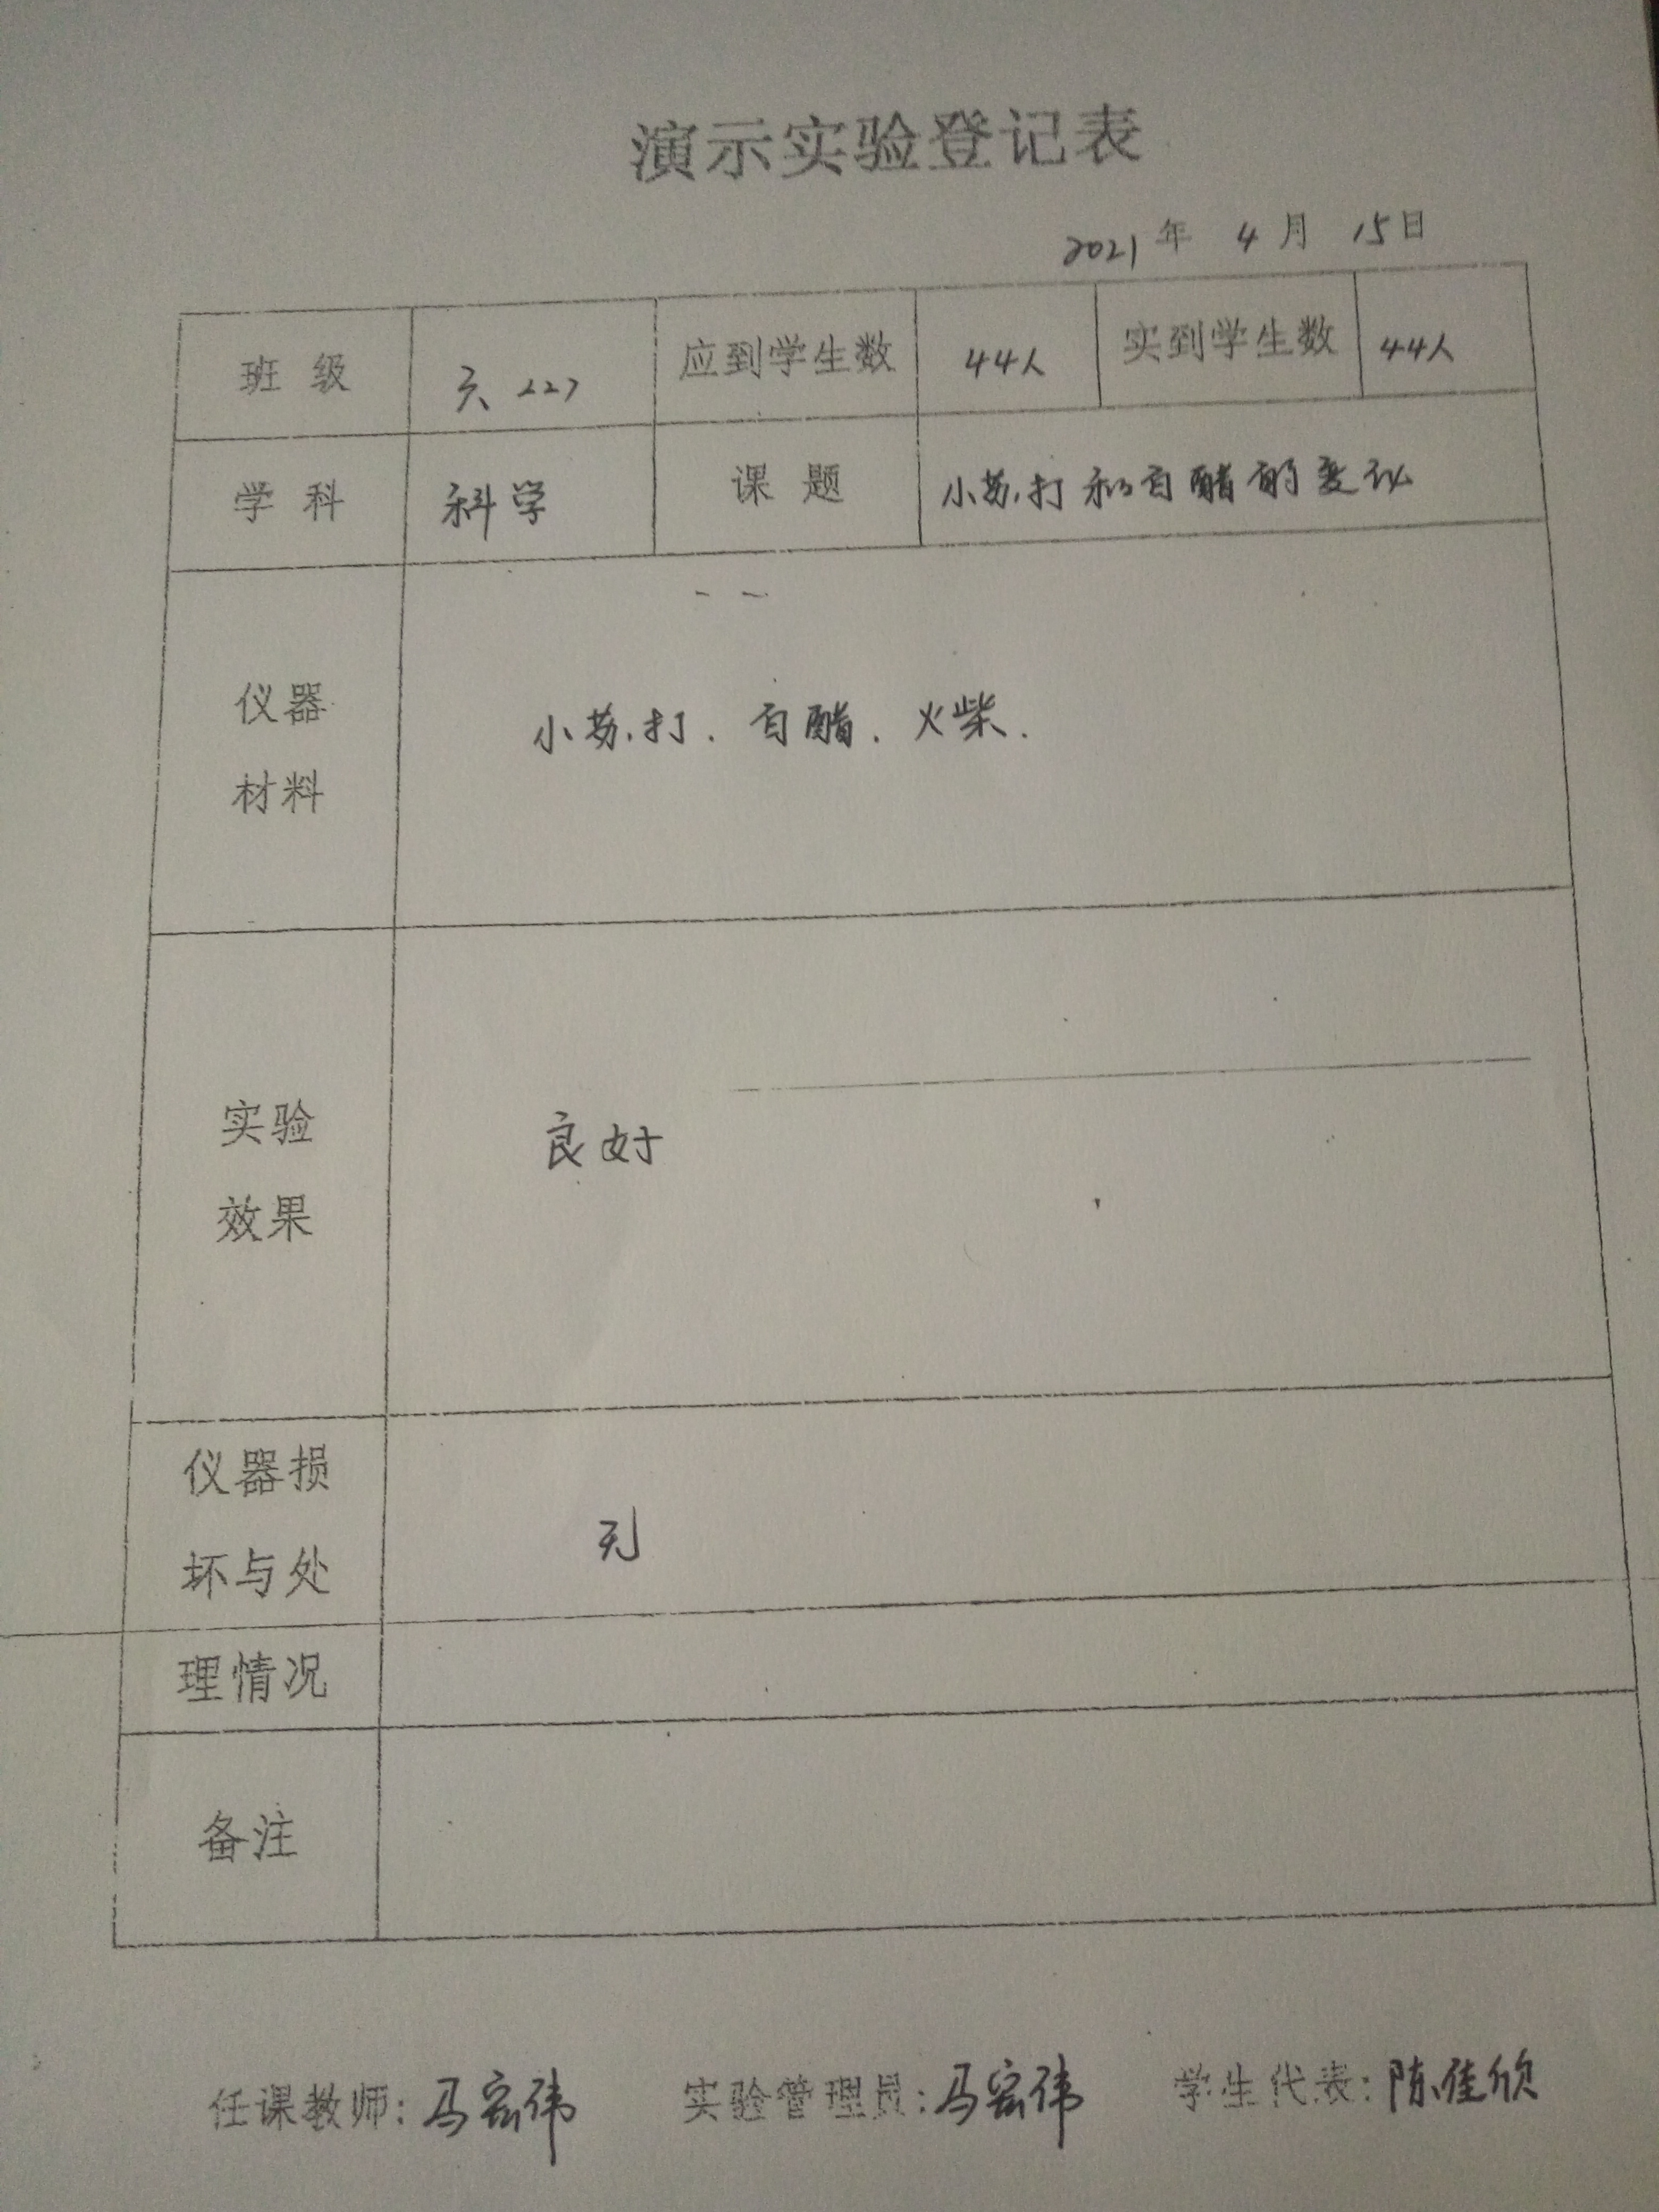 演示实验登记表
2021年 4月 15日
班级 六、<2> 应到学生数 44人 实到学生数 44人
学科 科学 课题 小苏打和白醋的变化
仪器
材料
小苏打．白醋．火柴．
实验
效果
良好
仪器损
坏与处
理情况
无
备注
任课教师：马宏伟 实验管理员：马宏伟 学生代表：陈佳欣